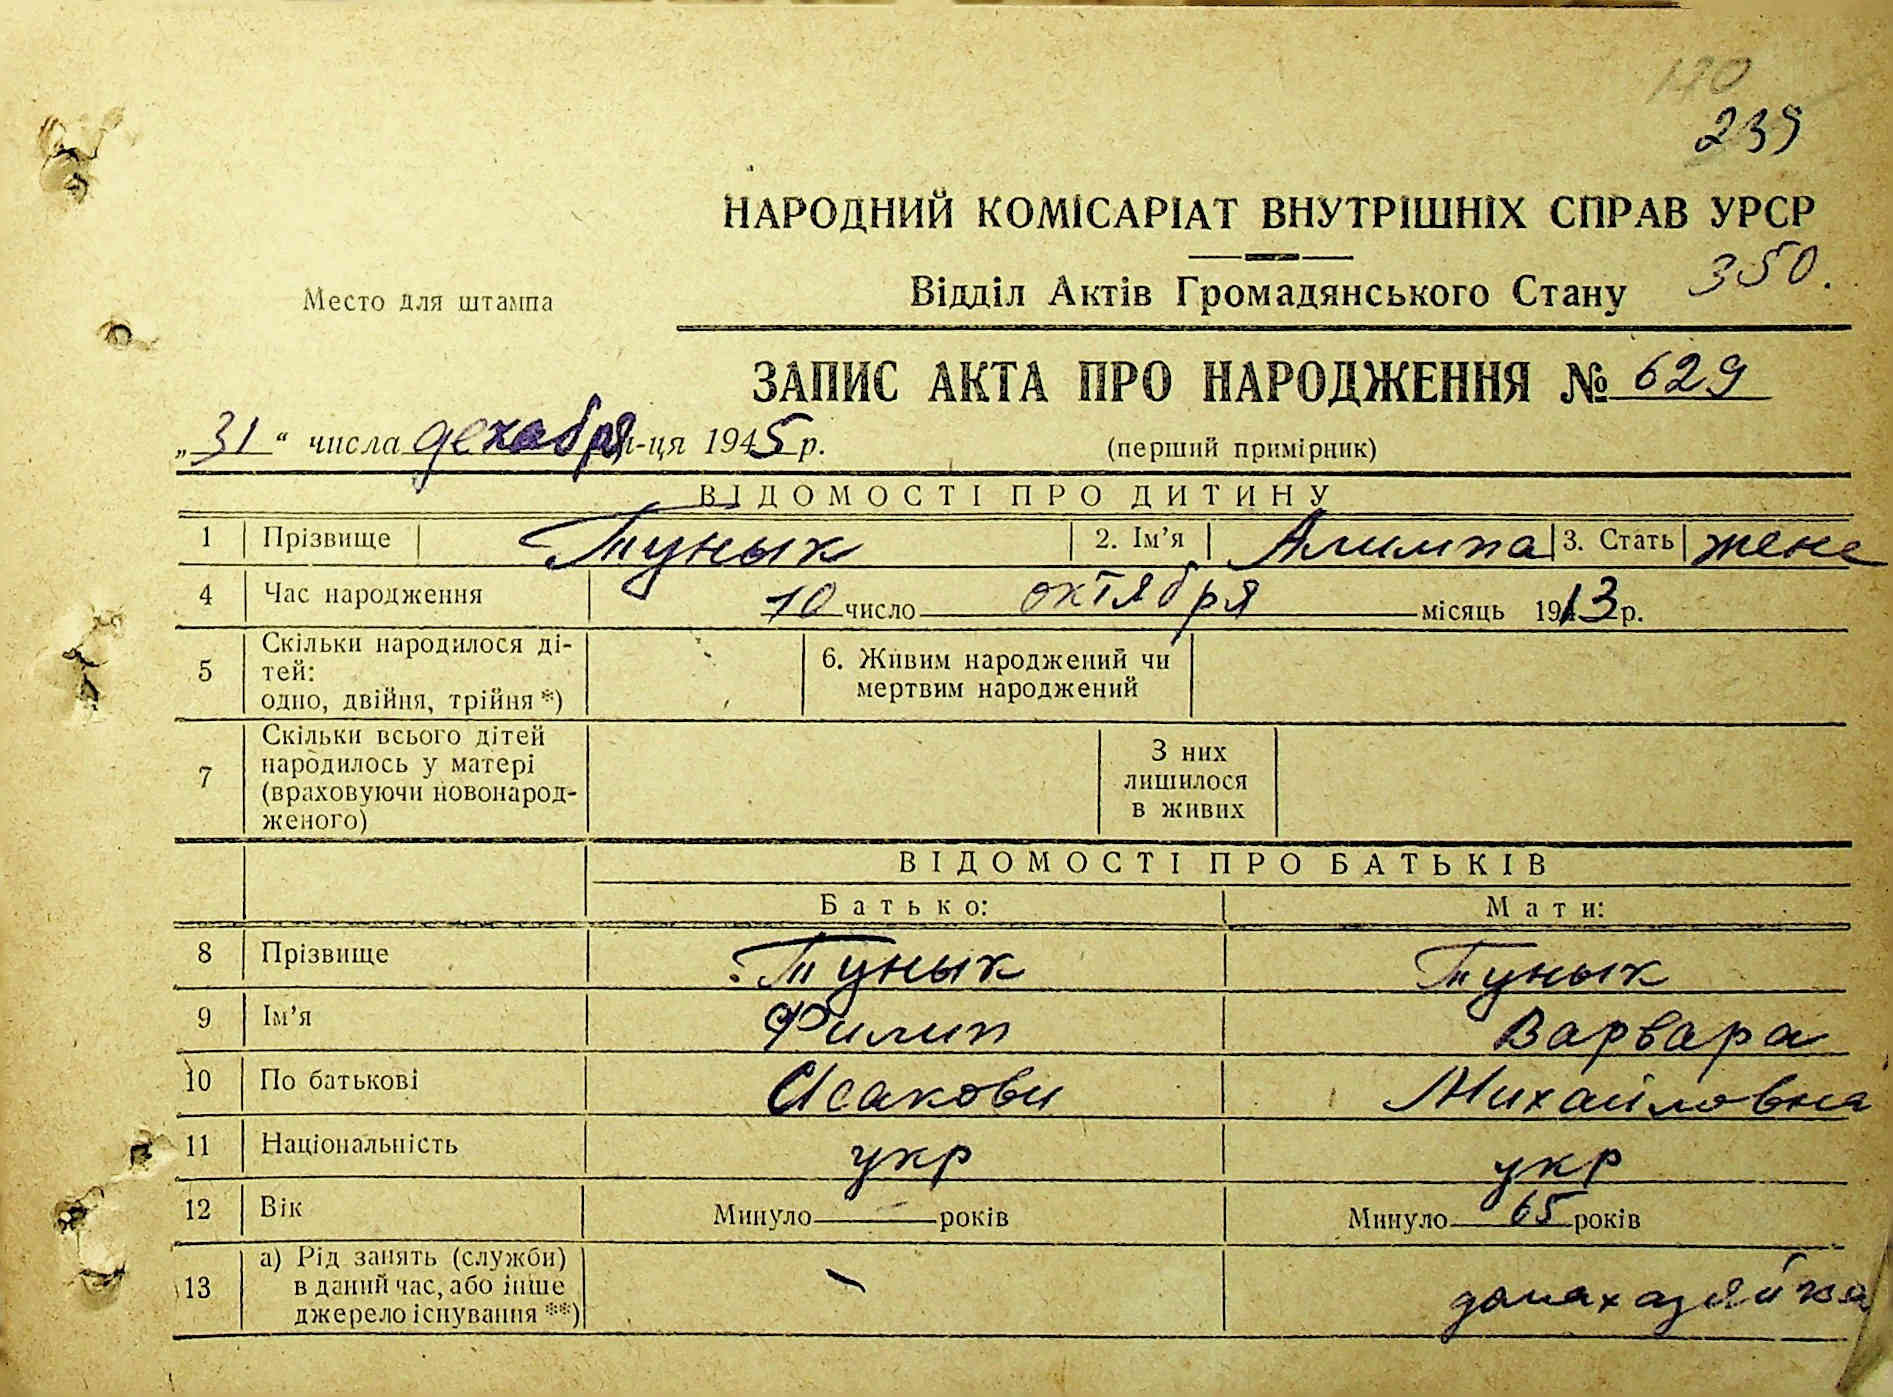 170
239
НАРОДНИЙ КОМІСАРІАТ ВНУТРІШНІХ СПРАВ УРСР
Место для штампа
Відділ Актів Громадянського Стану 350.
ЗАПИС АКТА ПРО НАРОДЖЕННЯ № 629
„31“ числа декабря м-ця 1945 р. (перший примірник)
ВІДОМОСТІ ПРО ДИТИНУ
1 Прізвище Тунык 2. Ім’я Алимпа 3. Стать жене
4 Час народження 10 число октября місяць 1913 р.
5 Скільки народилося ді-
тей:
одно, двійня, трійня *)
6. Живим народжений чи
мертвим народжений
7 Скільки всього дітей
народилось у матері
(враховуючи новонарод-
женого)
З них
лишилося
в живих
ВІДОМОСТІ ПРО БАТЬКІВ
Батько: Мати:
8 Прізвище Тунык Тунык
9 Ім’я Филип Варвара
10 По батькові Исакови Михайловна
11 Національність укр укр
12 Вік Минуло — років Минуло 65 років
13 а) Рід занять (служби)
в даний час, або інше
джерело існування **)
домахазяйка